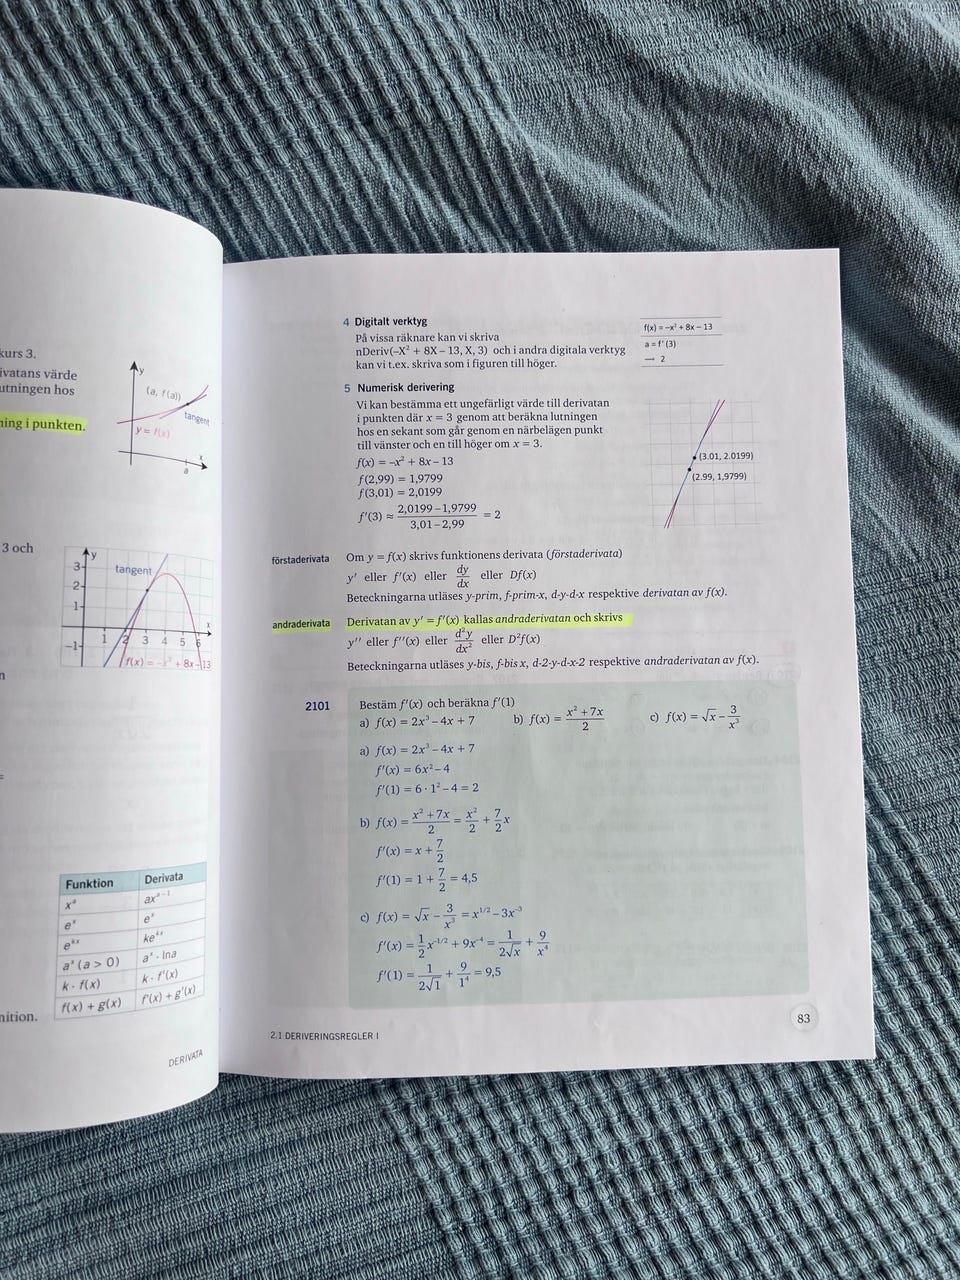 kurs 3.
ivatans värde
utningen hos
ning i punkten.
y
(a, f(a))
tangent
y = f(x)
x
a
3 och
y
3
tangent
2
1
1 2 3 4 5 6
x
−1
f(x) = −x² + 8x − 13
n
=
Funktion Derivata
xᵃ axᵃ⁻¹
eˣ eˣ
eᵏˣ keᵏˣ
aˣ (a > 0) aˣ · lna
k · f(x) k · f′(x)
f(x) + g(x) f′(x) + g′(x)
nition.
DERIVATA
4 Digitalt verktyg
På vissa räknare kan vi skriva
nDeriv(–X² + 8X – 13, X, 3) och i andra digitala verktyg
kan vi t.ex. skriva som i figuren till höger.
f(x) = –x² + 8x – 13
a = f′(3)
→ 2
5 Numerisk derivering
Vi kan bestämma ett ungefärligt värde till derivatan
i punkten där x = 3 genom att beräkna lutningen
hos en sekant som går genom en närbelägen punkt
till vänster och en till höger om x = 3.
f(x) = –x² + 8x – 13
f(2,99) = 1,9799
f(3,01) = 2,0199
f′(3) ≈ (2,0199 – 1,9799)/(3,01 – 2,99) = 2
(3.01, 2.0199)
(2.99, 1,9799)
förstaderivata Om y = f(x) skrivs funktionens derivata (förstaderivata)
y′ eller f′(x) eller dy/dx eller Df(x)
Beteckningarna utläses y-prim, f-prim-x, d-y-d-x respektive derivatan av f(x).
andraderivata Derivatan av y′ = f′(x) kallas andraderivatan och skrivs
y′′ eller f′′(x) eller d²y/dx² eller D²f(x)
Beteckningarna utläses y-bis, f-bis x, d-2-y-d-x-2 respektive andraderivatan av f(x).
2101 Bestäm f′(x) och beräkna f′(1)
a) f(x) = 2x³ – 4x + 7 b) f(x) = (x² + 7x)/2 c) f(x) = √x – 3/x³
a) f(x) = 2x³ – 4x + 7
f′(x) = 6x² – 4
f′(1) = 6 · 1² – 4 = 2
b) f(x) = (x² + 7x)/2 = x²/2 + 7/2 x
f′(x) = x + 7/2
f′(1) = 1 + 7/2 = 4,5
c) f(x) = √x – 3/x³ = x^1/2 – 3x⁻³
f′(x) = 1/2 x^-1/2 + 9x⁻⁴ = 1/(2√x) + 9/x⁴
f′(1) = 1/(2√1) + 9/1⁴ = 9,5
2.1 DERIVERINGSREGLER I
83